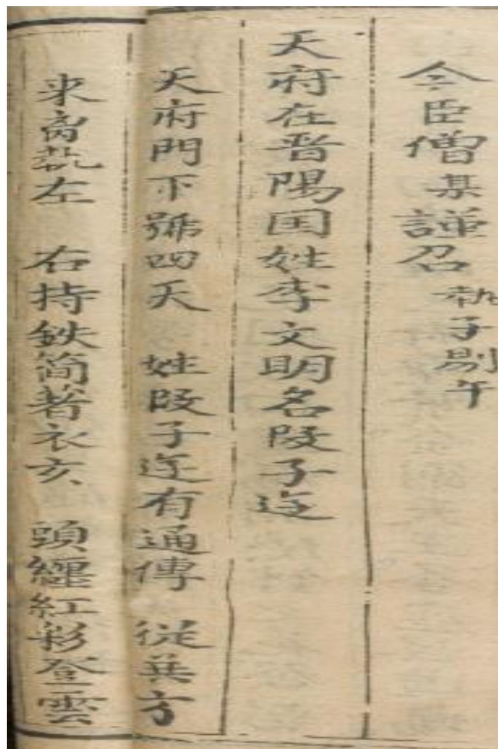 今臣僧某謹召 执子剔午
天府在晋陽国姓李文明名段子迋
天府門下號四天 姓段子迋有通傳 從巽方
来离执左 右持鉄简著衣玄、 頭纏紅彩登雲